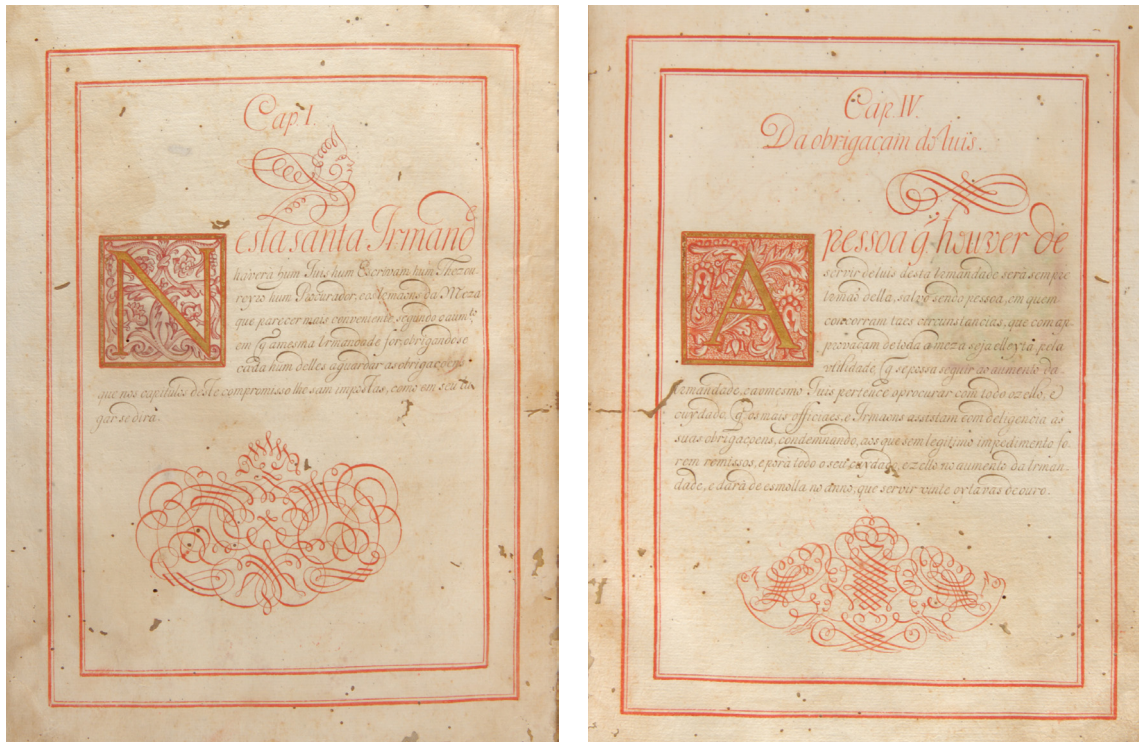 Cap. I.
Nesta santa Irmand.e
haverá hum Juis hum Escrivam, hum Thezou-
reyro hum Procurador, e os Irmaons da Meza
que parecer mais conveniente, segundo o aum.to
em q̃ a mesma Irmandade for, obrigandose
cada hum delles a guardar as obrigaçoens
que nos capitulos deste compromisso lhe sam impostas, como em seu lu-
gar se dirá.
Cap. IV.
Da obrigaçam do Iuis.
A pessoa q̃ houver de
servir de Iuis desta Irmandade será sempre
Irmaõ della, salvo sendo pessoa, em quem
concorram taes circunstancias, que com ap-
provaçam de toda a meza seja elleyta pela
utilidade, q̃ se possa seguir ao aumento da
Irmandade, e ao mesmo Juis pertence aprocurar com todo o zello, e
cuydado, q̃ os mais officiaes, e Irmaons assistam com deligencia as
suas obrigaçoens, condemnando, aos que sem legitimo impedimento fo-
rem remissos, e porá todo o seu cuydado, e zello no aumento da Irman-
dade, e dará de esmolla no anno, que servir vinte oytavas de ouro.